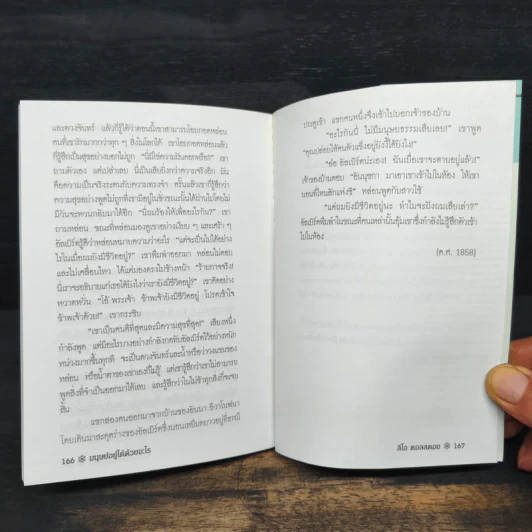 และดวงจันทร์ แล้วก็รู้ได้ว่าตอนนี้เขาสามารถโอบกอดหล่อน
คนที่เขารักมากกว่าทุก ๆ สิ่งในโลกได้ เขาโอบกอดหล่อนแล้ว
ก็รู้สึกเป็นสุขอย่างบอกไม่ถูก "นี่มิใช่ความฝันดอกหรือ" เขา
ถามตัวเอง แต่เปล่าเลย นี่เป็นสิ่งยิ่งกว่าความจริงอีก มัน
คือความเป็นจริงระคนกับความทรงจำ ครั้นแล้วเขาก็รู้สึกว่า
ความสุขอย่างพูดไม่ถูกที่เขามีอยู่ในชั่วขณะนั้นได้ผ่านไปโดยไม่
มีวันจะหวนกลับมาได้อีก "นี่ผมร้องไห้เพื่ออะไรกัน?" เขา
ถามหล่อน ขณะที่หล่อนมองดูเขาอย่างเงียบ ๆ และเศร้า ๆ
อัลเบิร์ตรู้ดีว่าหล่อนหมายความว่าอะไร "แต่จะเป็นไปได้อย่าง
ไรในเมื่อผมยังมีชีวิตอยู่?" เขาพึมพำออกมา หล่อนไม่ตอบ
และไม่เคลื่อนไหว ได้แต่มองตรงไปข้างหน้า "ร้ายกาจจริง!
นี่เราจะอธิบายแก่เธอได้ยังไงว่าเรายังมีชีวิตอยู่" เขาคิดอย่าง
หวาดหวั่น "โอ้ พระเจ้า ข้าพเจ้ายังมีชีวิตอยู่ โปรดเข้าใจ
ข้าพเจ้าด้วย!" เขากระซิบ
"เขาเป็นคนดีที่สุดและมีความสุขที่สุด!" เสียงหนึ่ง
กำลังพูด แต่มีอะไรบางอย่างกำลังกดทับอัลเบิร์ตไว้อย่างหนัก
หน่วงมากขึ้นทุกที จะเป็นดวงจันทร์และน้ำหรือว่าวงแขนของ
หล่อน หรือน้ำตาของเขาเองก็ไม่รู้ แต่เขารู้สึกว่าเขาไม่สามารถ
พูดสิ่งที่จำเป็นออกมาได้เลย และรู้สึกว่าในไม่ช้าทุกสิ่งก็จะจบ
สิ้น
แขกสองคนออกมาจากบ้านของอันนา อิวานอฟนา
โดยเดินมาสะดุดร่างของอัลเบิร์ตซึ่งนอนเหยียดยาวอยู่ที่ธรณี
166 มนุษย์อยู่ได้ด้วยอะไร
ประตูเข้า แขกคนหนึ่งจึงเข้าไปบอกเจ้าของบ้าน
"อะไรกันนี่ ไม่มีมนุษยธรรมเสียเลย!" เขาพูด
"คุณปล่อยให้คนตัวแข็งอยู่ยังงี้ได้ยังไง!"
"อ๋อ อัลเบิร์ตน่ะเอง! ฉันเบื่อเขาจะตายอยู่แล้ว!"
เจ้าของบ้านตอบ "อันนุชกา มาเอาเขาเข้าไปในห้อง ให้เขา
นอนที่ไหนสักแห่งซิ" หล่อนพูดกับสาวใช้
"แต่ผมยังมีชีวิตอยู่นะ ทำไมจะฝังผมเสียเล่า?"
อัลเบิร์ตพึมพำในขณะที่คนเหล่านั้นอุ้มเขาซึ่งกำลังไม่รู้สึกตัวเข้า
ไปในห้อง
[ค.ศ. 1858]
ลีโอ ตอลสตอย 167